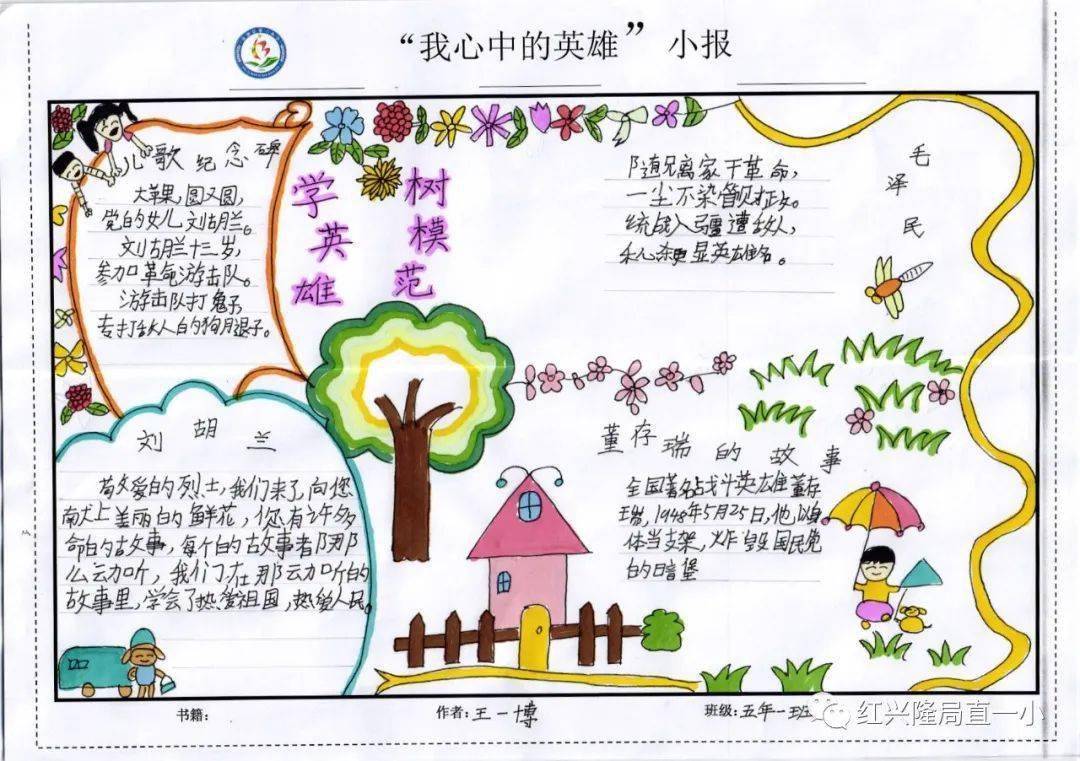 “我心中的英雄” 小报
儿歌纪念碑
大苹果,圆又圆,
党的女儿刘胡兰。
刘胡兰十三岁,
参加革命游击队。
游击队打鬼子,
专打敌人的狗腿子。
学英雄
树模范
随兄离家干革命,
一尘不染
统战入疆遭敌人,
显英雄名。
毛泽民
刘胡兰
敬爱的烈士,我们来了,向您
献上美丽的鲜花,您有许多
命的故事,每个的故事者阝那
么云力听,我们在那云力听的
故事里,学会了热爱祖国,热爱人民。
董存瑞的故事
全国著名战斗英雄董存
瑞,1948年5月25日,他以身
体当支架,炸毁国民党
的暗堡
书籍:
作者:王一博
班级:五年一班
红兴隆局直一小